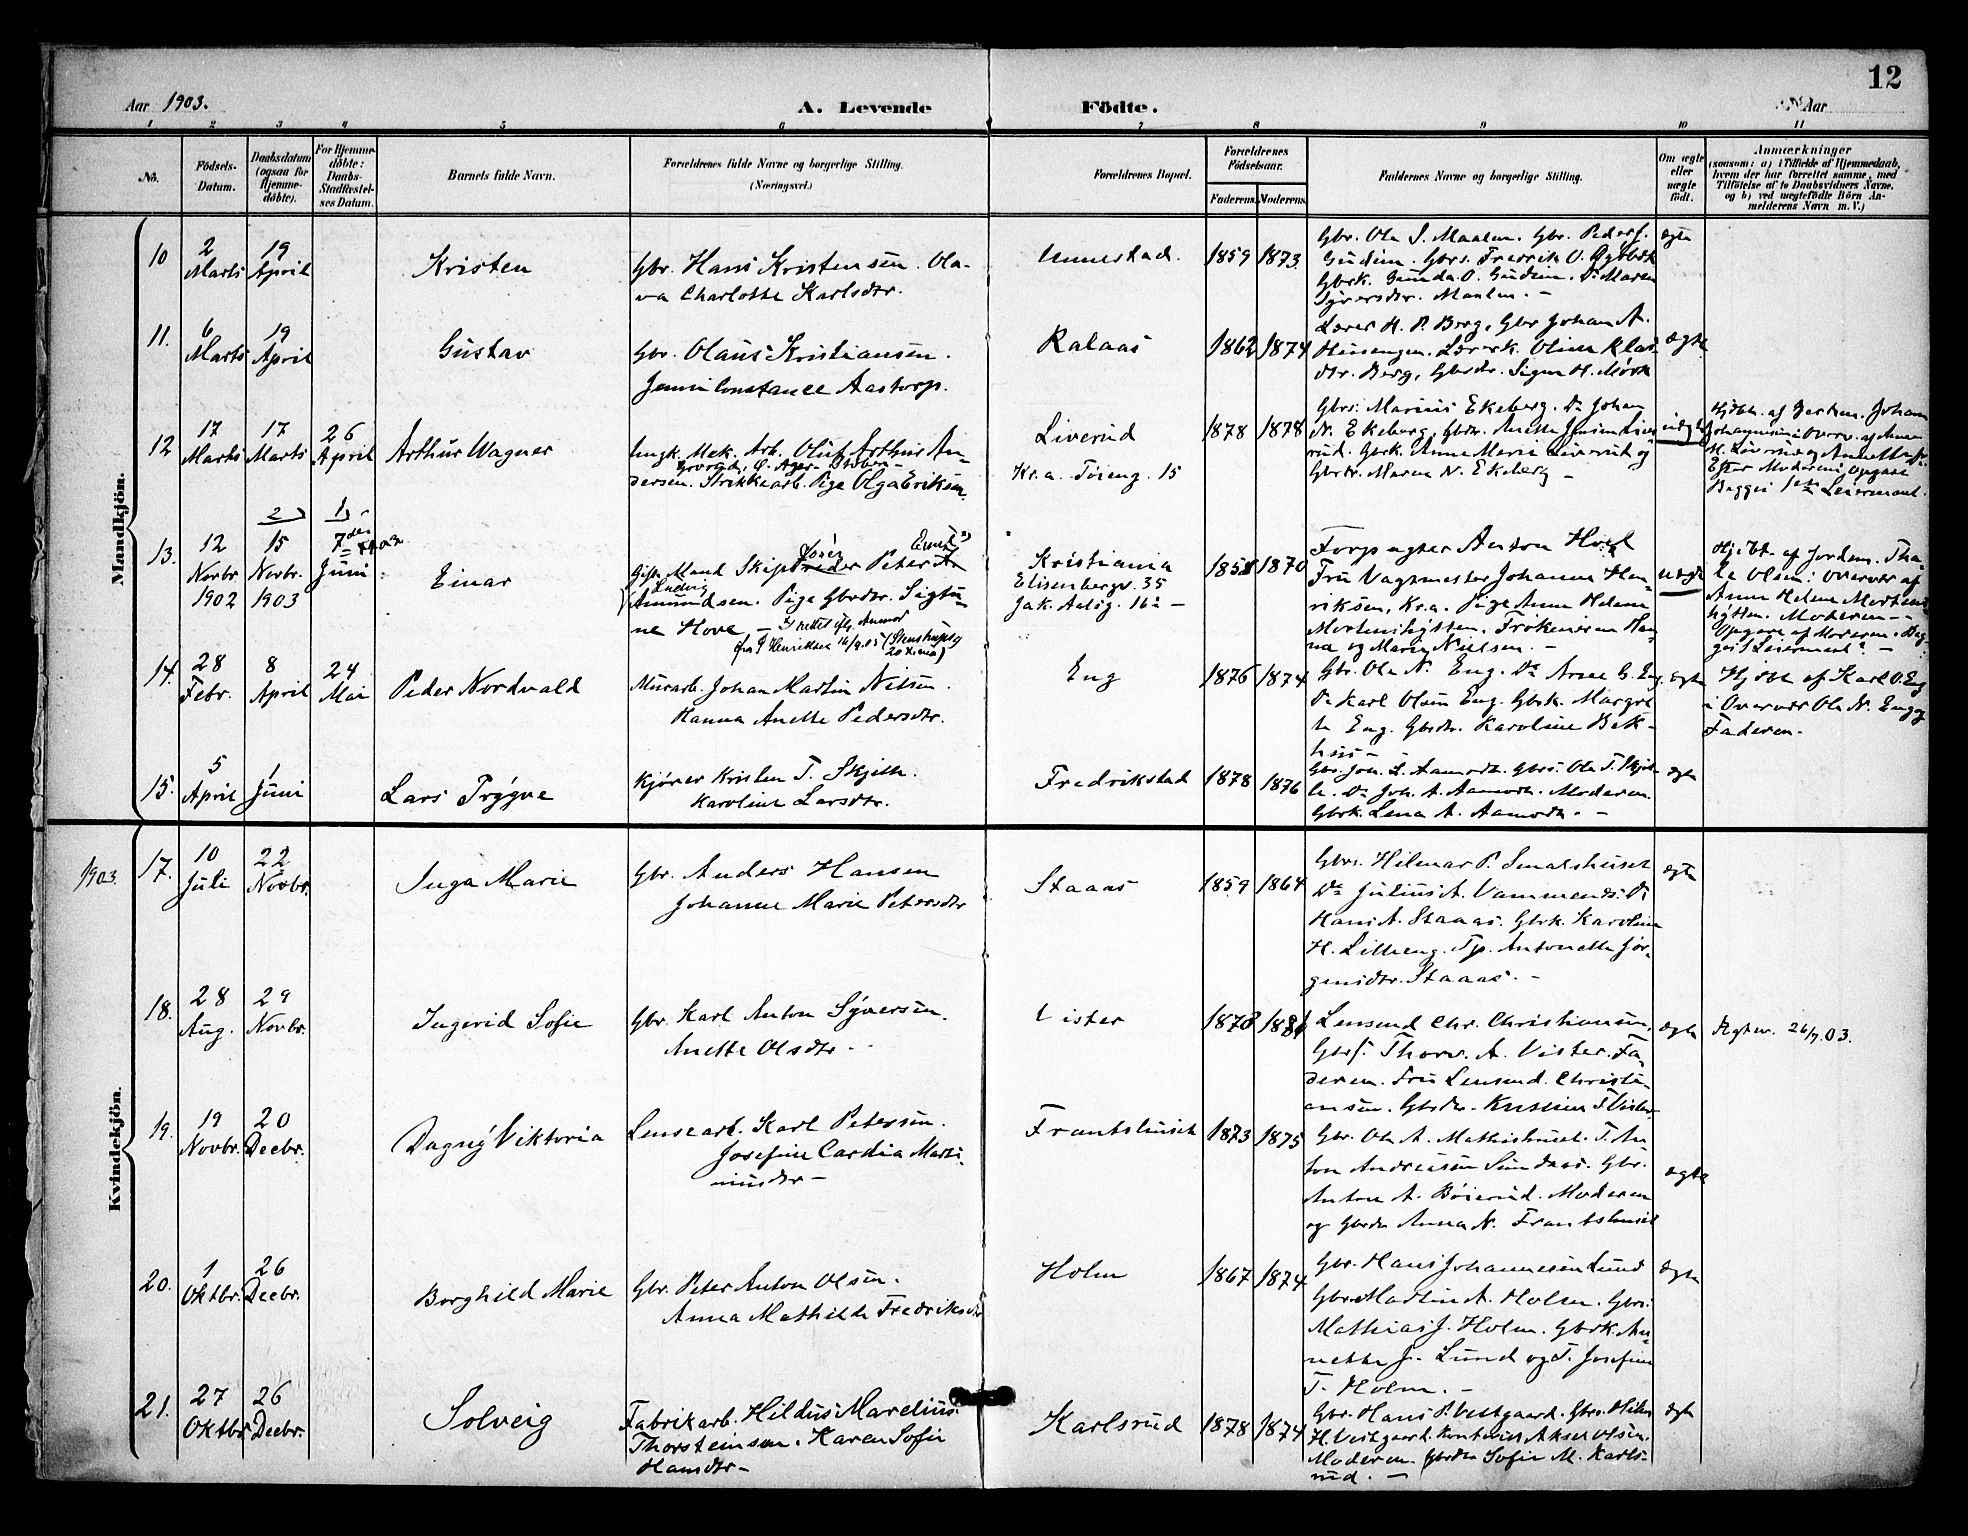 12
Aar 1903.
A. Levende Födte.
Aar
1 2 3 4 5 6 7 8 9 10 11
No.
Födsels-Datum.
Daabsdatum (ogsaa for Hjemme-döbte).
For Hjemme-döbte: Daabs-Stadfæstel-ses Datum.
Barnets fulde Navn.
Forældrenes fulde Navne og borgerlige Stilling.
(Næringsvei.)
Forældrenes Bopæl.
Forældrenes Födselsaar.
Faderens. Moderens.
Faddernes Navne og borgerlige Stilling.
Om ægte eller uægte födt.
Anmærkninger
(saasom: a) i Tilfælde af Hjemmedaab,
hvem der har forrettet samme, med
Tilföielse af to Daabsvidners Navne,
og b) ved uægtefödte Börn An-
melderens Navn m. V.)
Mandkjön.
10 2 Marts 19 April Kristen
Gbr. Hans Kristensen. Ola-
va Charlotte Karlsdtr.
Unnestad. 1859 1873
Gbr. Ole S. Maalen. Gbr. Peder
Gudim. Gbrs. Fredrik O.
Gbrk. Gunda O. Gudim. Do Maren
Syversdtr. Maalen. -
ægte
11. 6 Marts 19 April Gustav
Gbr. Olaus Kristiansen.
Jenni Constance Aastorp.
Kalaas 1862 1874
Lærer H. P. Berg, Gbr Johan A.
Oline Klas-
dtr. Berg, Gbrdr. Signe H. Mörk
ægte
12 17 Marts 17 Marts 26 April Arthur Wagner
Ungk. Mek. Arb. Oluf Arthur An-
dersen. Strikkearb. Pige Olga Eriksen
Liverud
Kr.a. Töieng. 15
1878 1878
Gbrs. Marius Ekeberg. Do Johan
N. Ekeberg, Gbrdr. Anette
rud. Gbrk. Anne Marie Liverud og
Gbrdr. Maren N. Ekeberg -
uægte
Hjdbt. af Johan
i Overv. af
Efter Moderens Opgave
Begges 1ste Leiermaal.
13. 12 Novbr 1902 2) 15 Novbr. 1903 1) 7de Juni Einar
Gift Mand Skipsreder Peter
Ludvig
Amundsen. Pige Gbrdtr. Sigtu-
ne Hove -
Kristiania
Elisenbergv. 35
1870
Anton
Fru Vagtmester Johanne Hen-
riksen, Kr.a. Pige Anne Helene
na og Marie Nielsen. -
uægte
Hjdbt. af Jordm. Tha-
le Olsen i Overvær af
Anne Helene
Moderen -
Opgave af Moderen.
14. 28 Febr. 8 April 24 Mai Peder Nordvald
Murarb. Johan Martin Nilsen.
Hanna Anette Pedersdtr.
Eng 1876 1874
Gbr. Ole N. Eng. Do Arne G. Eng.
Do Karl Olsen Eng. Gbrk. Margre-
te Eng. Gbrdtr. Karoline Bek-
hus -
ægte
Hjdbt af Karl O. Eng
i Overvær Ole N. Eng og
Faderen.
15. 5 April 1 Juni Lars Trygve
Kjörer Kristen T. Skjelle.
Karoline Larsdtr.
Fredrikstad 1878 1876
Gbr. Joh. L. Aamodt. Gbrs. Ole T. Skjel-
le. Do Joh. A. Aamodt. Moderen.
Gbrk. Lena A. Aamodt. -
ægte
Kvindekjön.
1903 17. 10 Juli 22 Novbr. Inga Marie
Gbr. Anders Hansen
Johanne Marie Petersdtr
Staaas 1859 1864
Gbrs. Hilmar P. Smalshuset
Do Julius A. Vammenes. Do
Hans A. Staaas. Gbrk. Karoline
H. Lilleeng. Tp. Antonette Jör-
gensdtr. Staaas. -
ægte
18. 28 Aug. 29 Novbr. Ingerid Sofie
Gbr. Karl Anton Syversen.
Anette Olsdtr -
Vister 1878 1881
Lensmd Chr. Christiansen.
Gbrs. Thorv. A. Vister. Fa-
deren. Fru Lensmd. Christi-
ansen. Gbrdtr. Kristine T Vister
ægte
Ægtev. 26/7. 03.
19. 19 Novbr. 20 Decbr. Dagny Viktoria
Lensearb. Karl Petersen.
Josefine Cardia Marti-
nusdtr -
Frantshuset 1873 1875
Gbr. Ole A. Mathishuset. T. An-
ton Andreasen Sundaas. Gbr.
Anton A. Böierud. Moderen
og Gbrdtr Anna N. Frantshuset
ægte
20. 1 Oktbr. 26 Decbr. Borghild Marie
Gbr. Peter Anton Olsen.
Anna Mathilde Fredriksdtr
Holm 1867 1874
Gbr. Hans Johannesen Lund
Gbr. Martin A. Holm. Gbrs.
Mathias J. Holm. Gbrk. An-
nette J. Lund og T. Josefine
T. Holm. -
ægte
21. 27 Oktbr 26 Decbr. Solveig
Fabrikarb. Hildus Marelius
Thorsteinsen. Karen Sofie
Hansdtr -
Karlsrud 1878 1874
Gbr. Hans P. Vestgaard. Gbrs. Hilm.
H. Vestgaard. Kontorist Aksel Olsen.
Moderen. Gbrdtr Sofie M. Karls-
rud. -
ægte